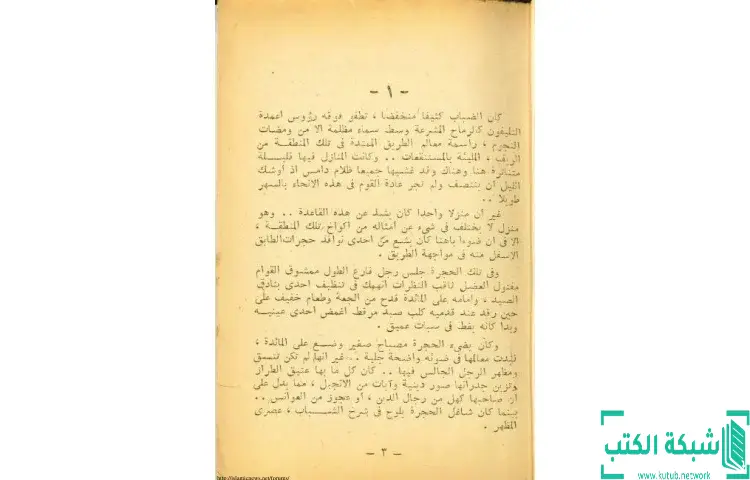 - ١ -
كان الضباب كثيفا منخفضا ، تطفو فوقه رؤوس اعمدة
التليفون كالرماح المشرعة وسط سماء مظلمة الا من ومضات
النجوم ، راسمة معالم الطريق الممتدة فى تلك المنطقة من
الريف ، المليئة بالمستنقعات .. وكانت المنازل فيها قليلة
متناثرة هنا وهناك وقد غشيها جميعا ظلام دامس اذ أوشك
الليل ان ينتصف ولم تجر عادة القوم فى هذه الانحاء بالسهر
طويلا ..
غير ان منزلا واحدا كان يشذ عن هذه القاعدة .. وهو
منزل لا يختلف فى شىء عن امثاله من اكواخ تلك المنطقة ،
الا فى ان ضوءا باهتا كان يشع من احدى نوافذ حجرات الطابق
الاسفل منه فى مواجهة الطريق .
وفى تلك الحجرة جلس رجل فارع الطول ممشوق القوام
مفتول العضل ثاقب النظرات انهمك فى تنظيف احدى بنادق
الصيد ، وامامه على المائدة قدح من الجعة وطعام خفيف على
حين رقد عند قدميه كلب صيد مرقط اغمض احدى عينيه
وبدا كانه يغط فى سبات عميق .
وكان يضىء الحجرة مصباح صغير وضع على المائدة ،
فبدت معالمها فى ضوئه واضحة جلية .. غير انها لم تكن تتسق
ومظهر الرجل الجالس فيها .. كان كل ما بها عتيق الطراز
وتزين جدرانها صور دينية وآيات من الانجيل ، مما يدل على
ان صاحبها كهل من رجال الدين ، أو عجوز من العوانس ..
بينما كان شاغل الحجرة يلوح فى شرخ الشباب ، عصرى
المظهر .
- ٣ -
شبكة الكتب
www.kutub.network